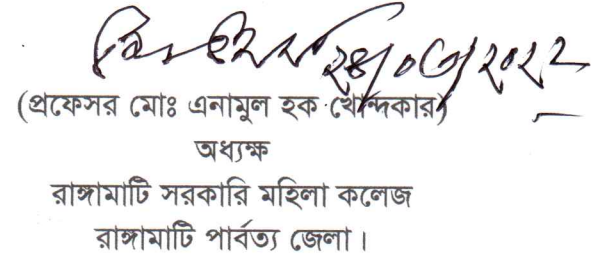 ২৪/০৩/২০২২
(প্রফেসর মোঃ এনামুল হক খোন্দকার)
অধ্যক্ষ
রাঙ্গামাটি সরকারি মহিলা কলেজ
রাঙ্গামাটি পার্বত্য জেলা।